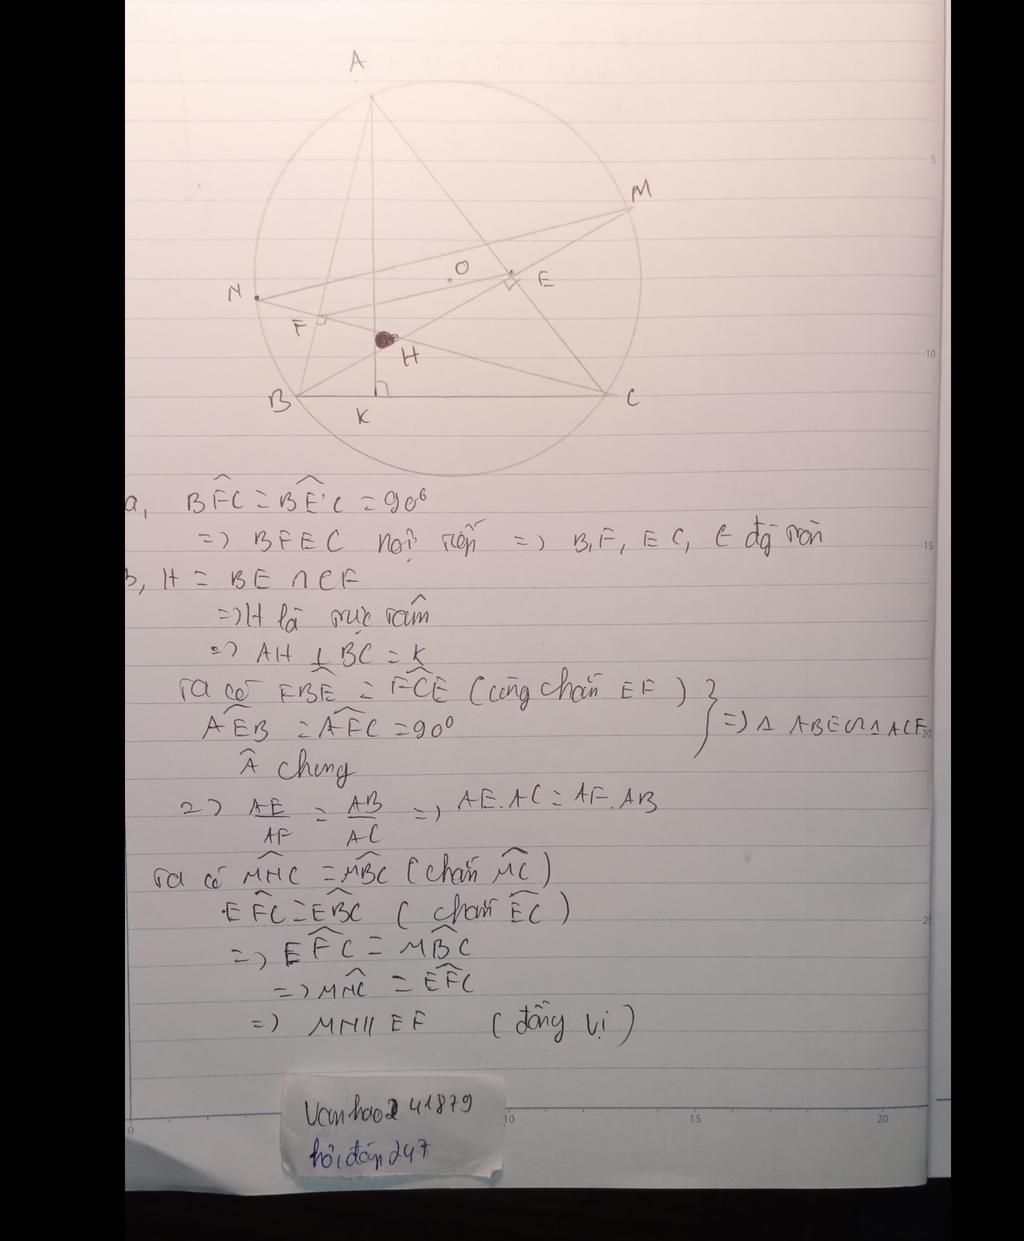 A
M
O
E
N
F
H
B
K
C
5
10
a, BF̂C = BÊC = 90⁰
=> BFEC nội tiếp => B, F, E C, ∈ đg tròn
15
b, H = BE ∩ CF
=> H là trực tâm
=> AH ⊥ BC = K
Ta có FB̂E = FĈE (cùng chắn EF)
AÊB = AF̂C = 90⁰ } => Δ ABE ∽ Δ ACF
20
Â chung
=> AE/AF = AB/AC => AE.AC = AF.AB
Ta có MN̂C = MB̂C (chắn MC)
EF̂C = EB̂C (chắn EC)
=> EF̂C = MB̂C
=> MN̂C = EF̂C
=> MN // EF (đồng vị)
Vanhao241879
hỏi đáp 247
0 10 15 20